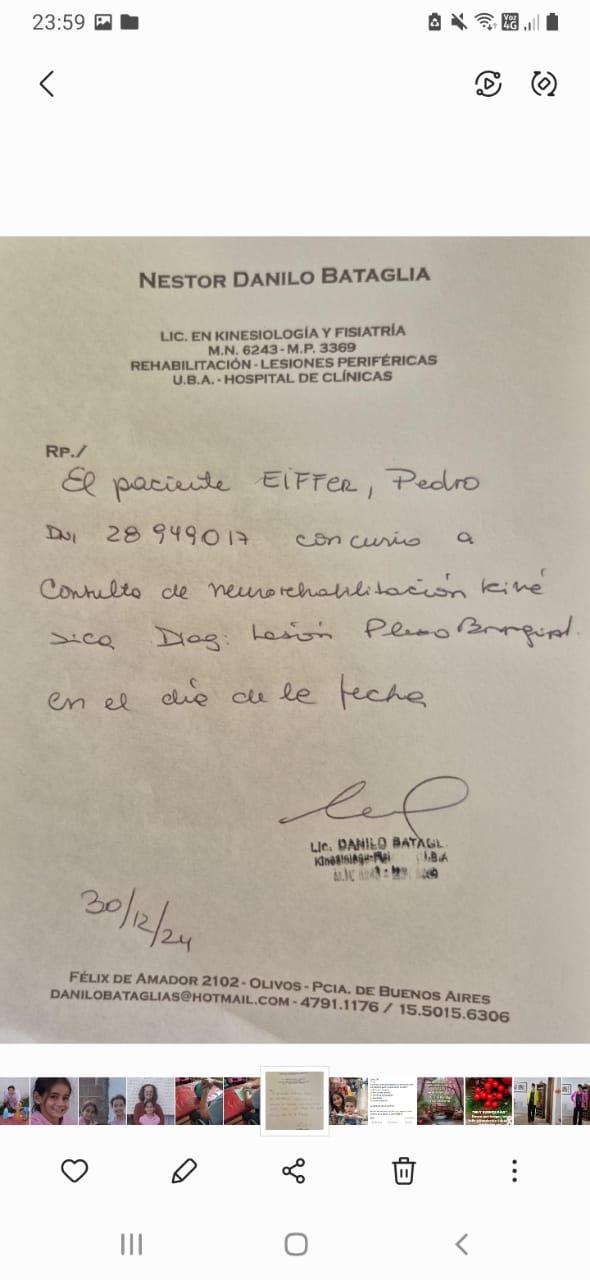 23:59
Voz
4G
NESTOR DANILO BATAGLIA
LIC. EN KINESIOLOGÍA Y FISIATRÍA
M.N. 6243 - M.P. 3369
REHABILITACIÓN - LESIONES PERIFÉRICAS
U.B.A. - HOSPITAL DE CLÍNICAS
RP./
El paciente EIFFER, Pedro
DNI 28 949017 concurrio a
Consulta de neurorehabilitación kiné
sica Diag: Lesión Plexo Braquial.
en el día de la fecha
Lic. DANILO BATAGL
30/12/24
FÉLIX DE AMADOR 2102 - OLIVOS - PCIA. DE BUENOS AIRES
DANILOBATAGLIAS@HOTMAIL.COM - 4791.1176 / 15.5015.6306